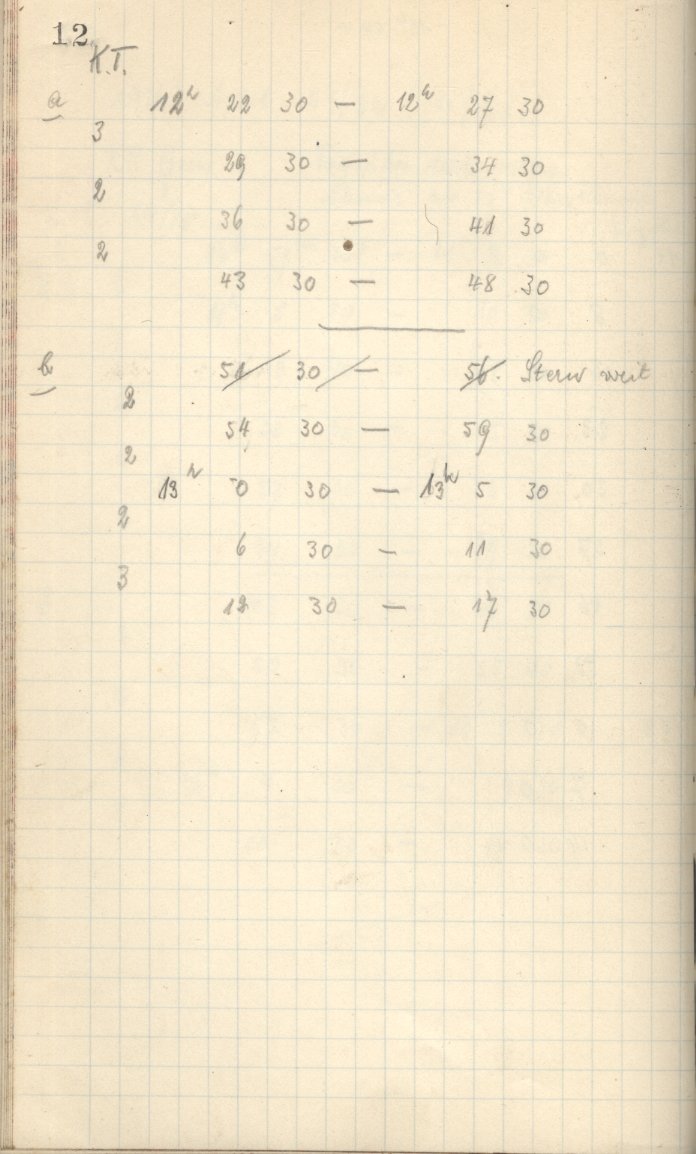 12
K.T.
a 12h 22 30 — 12h 27 30
3
29 30 — 34 30
2
36 30 — 41 30
2
43 30 — 48 30
b 51 30 — 56. Stern weit
2
54 30 — 59 30
2
13h 0 30 — 13h 5 30
2
6 30 — 11 30
3
12 30 — 17 30